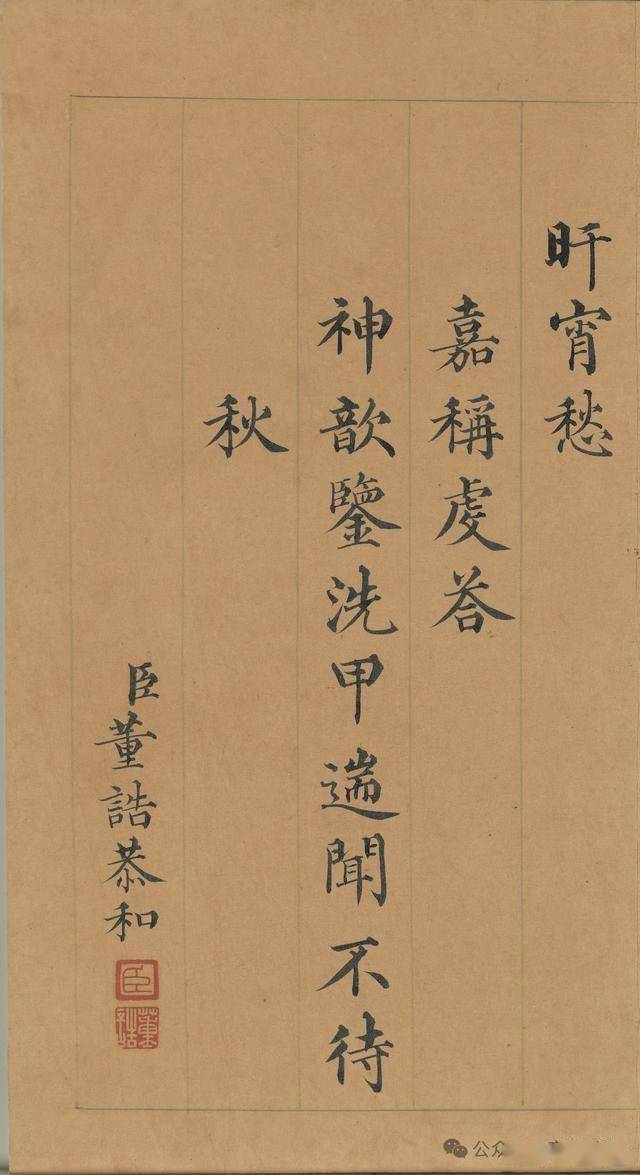 旰宵愁
嘉稱虔荅
神歆鑒洗甲遄聞不待
秋
臣董誥恭和
臣
董誥
公众